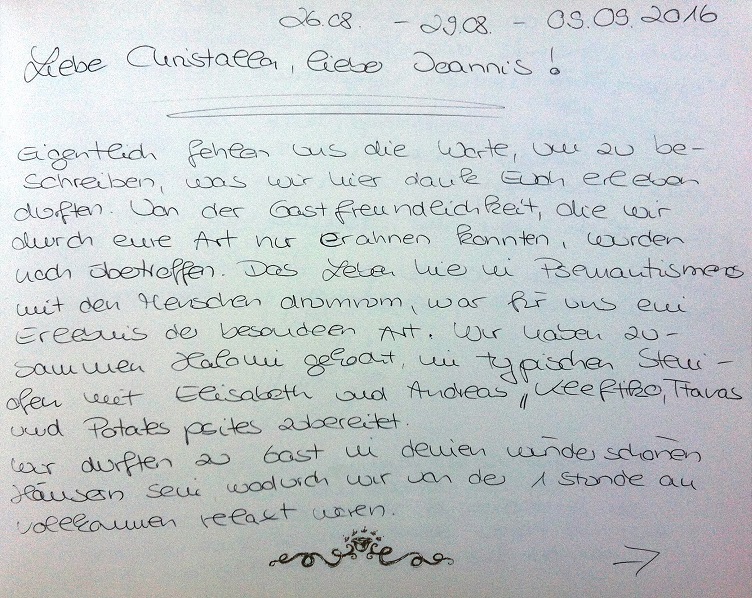 26.08. - 29.08. - 09.09.2016
Liebe Christalla, liebe Joannis!
Eigentlich fehlen uns die Worte, um zu be-
schreiben, was wir hier dank Euch erleben
durften. Von der Gastfreundlichkeit, die wir
durch eure Art nur erahnen konnten, wurden
noch übertroffen. Das Leben hie in Psematismeno
mit den Menschen drumrum, war für uns ein
Erlebnis der besonderen Art. Wir haben zu-
sammen Halomi gekocht, im typischen Stein-
ofen mit Elisabeth und Andreas „Kleftko, Travas
und Potates psites zubereitet.
Wir durften zu Gast in deinen wunderschönen
Häusern sein, wodurch wir von der 1 Stunde an
vollkommen relaxt waren.
→